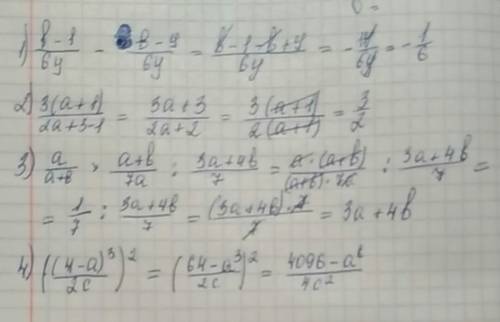 1) (в-1)/6y - (в-y)/6y = (в-1-в+y)/6y = -y/6y = -1/6
2) 3(a+1)/(2a+3-1) = (3a+3)/(2a+2) = 3(a+1)/2(a+1) = 3/2
3) a/(a+в) · (a+в)/7a : (3a+4в)/7 = a·(a+в)/(a+в)·7a : (3a+4в)/7 =
= 1/7 : (3a+4в)/7 = (3a+4в)·7/7 = 3a+4в
4) ((4-a)³/2c)² = (64-a³/2c)² = (4096-a⁶)/4c²